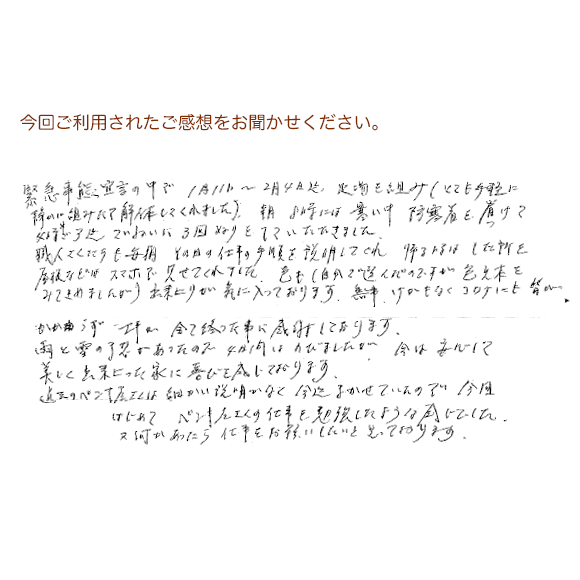 今回ご利用されたご感想をお聞かせください。
緊急事態宣言の中で 1月11日〜2月4日迄、足場を組み(とても手軽に
組みたて解体してくれました)。朝 8時には 寒い中 防寒着を着けて
ていねいに 3回ぬりをしていただきました。
職人さんたちも毎朝 その日の仕事の手順を説明してくれ 帰る時は した所を
屋根などは スマホで 見せてくれました。色も(自分で選んだのですが 色見本を
みてきめましたが) 出来上りが 気に入っております。無事、けがもなく コロナにも 皆が
かからず 工事が 全て終った事に感謝しております。
雨と雪の日があったので 4日間は のびましたが、今は 安心して
美しく出来上った家に喜びを感じております。
過去のペンキ屋さんは 細かい説明がなく 今迄まかせていたので 今回
はじめて ペンキ屋さんの仕事を勉強したような感じでした。
又何かあったら 仕事をお願いしたいと思っております。